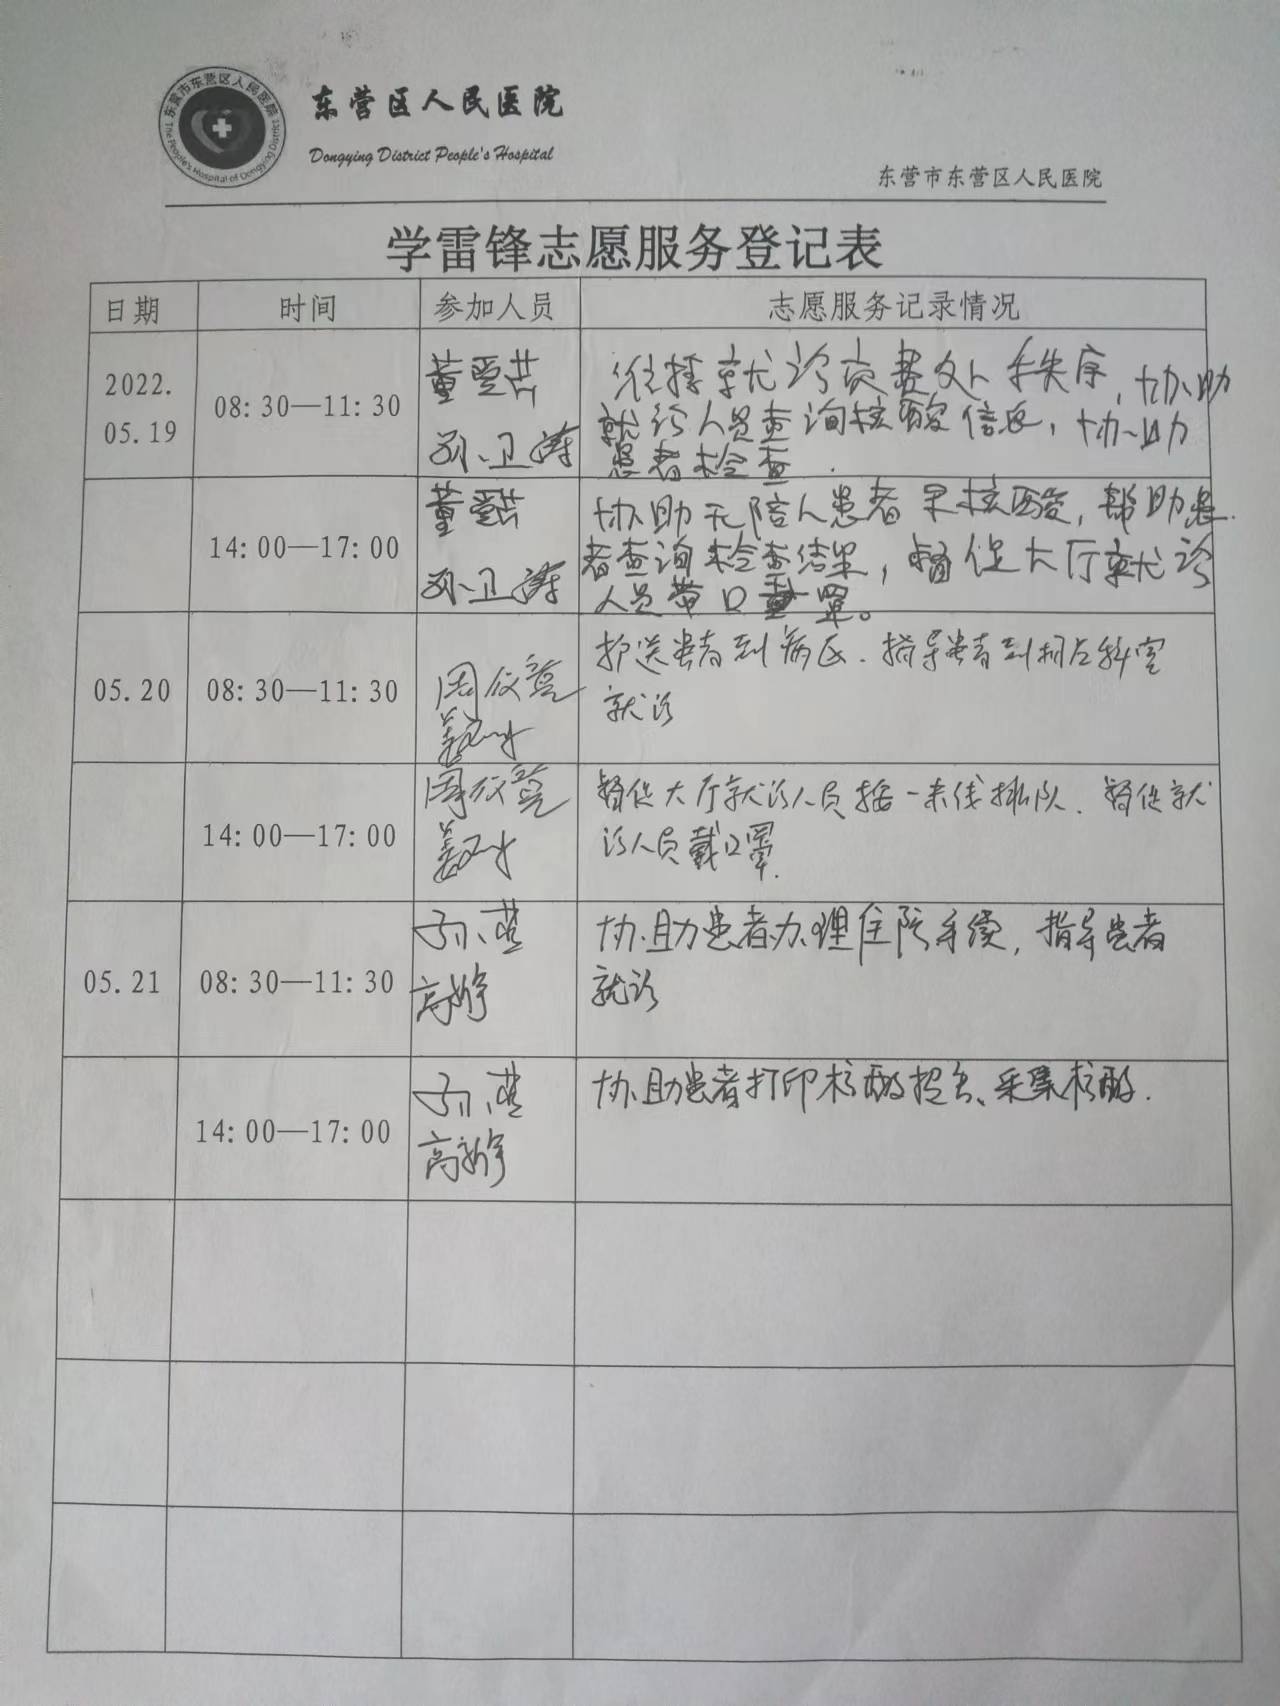 东营市东营区人民医院
The People's Hospital of Dongying District
东营区人民医院
Dongying District People's Hospital
东营市东营区人民医院
学雷锋志愿服务登记表
日期 时间 参加人员 志愿服务记录情况
2022.
05.19
08:30—11:30
孙卫涛
维持就诊交费处人手秩序,协助
就诊人员查询核酸信息,协助
患者检查.
14:00—17:00
孙卫涛
协助无陪人患者采核酸,帮助患
者查询检查结果,督促大厅就诊
人员带口罩。
05.20
08:30—11:30
护送患者到病区.指导患者到相应科室
就诊
14:00—17:00
督促大厅就诊人员按一米线排队.督促就
诊人员戴口罩.
05.21
08:30—11:30
协助患者办理住院手续,指导患者
就诊
14:00—17:00
协助患者打印核酸报告、采集核酸.